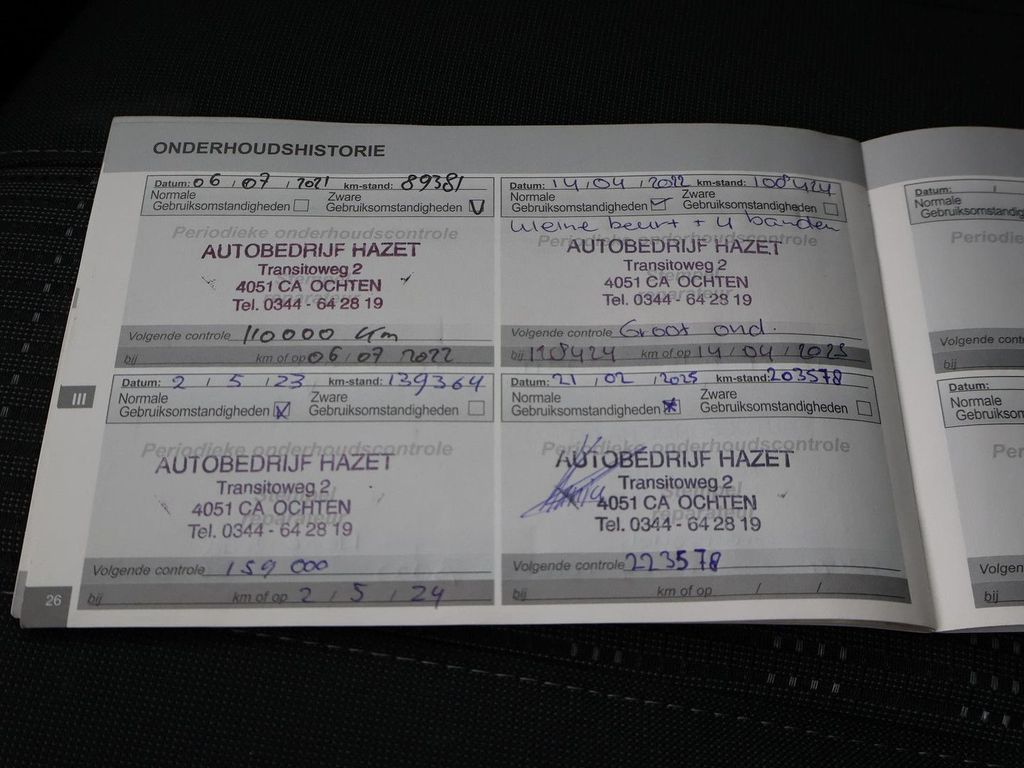 ONDERHOUDSHISTORIE
Datum: 06 / 07 / 2021 km-stand: 89381
Normale Gebruiksomstandigheden
Zware Gebruiksomstandigheden V
Periodieke onderhoudscontrole
AUTOBEDRIJF HAZET
Transitoweg 2
4051 CA OCHTEN
Tel. 0344 - 64 28 19
Volgende controle 110000 km
bij km of op 06 / 07 / 2022
Datum: 14 / 04 / 2022 km-stand: 108424
Normale Gebruiksomstandigheden
Zware Gebruiksomstandigheden
Kleine beurt + 4 banden
Periodieke onderhoudscontrole
AUTOBEDRIJF HAZET
Transitoweg 2
4051 CA OCHTEN
Tel. 0344 - 64 28 19
Volgende controle Groot ond.
bij 128424 km of op 14 / 04 / 2023
III
Datum: 2 / 5 / 23 km-stand: 139364
Normale Gebruiksomstandigheden X
Zware Gebruiksomstandigheden
Periodieke onderhoudscontrole
AUTOBEDRIJF HAZET
Transitoweg 2
4051 CA OCHTEN
Tel. 0344 - 64 28 19
Volgende controle 159 000
bij km of op 2 / 5 / 24
Datum: 21 / 02 / 2025 km-stand: 203578
Normale Gebruiksomstandigheden X
Zware Gebruiksomstandigheden
Periodieke onderhoudscontrole
AUTOBEDRIJF HAZET
Transitoweg 2
4051 CA OCHTEN
Tel. 0344 - 64 28 19
Volgende controle 223578
bij km of op / /
26
Datum: /
Normale
Gebruiksomstandig
Periodie
Volgende contr
bij
Datum:
Normale
Gebruiksom
Per
Volgen
bij